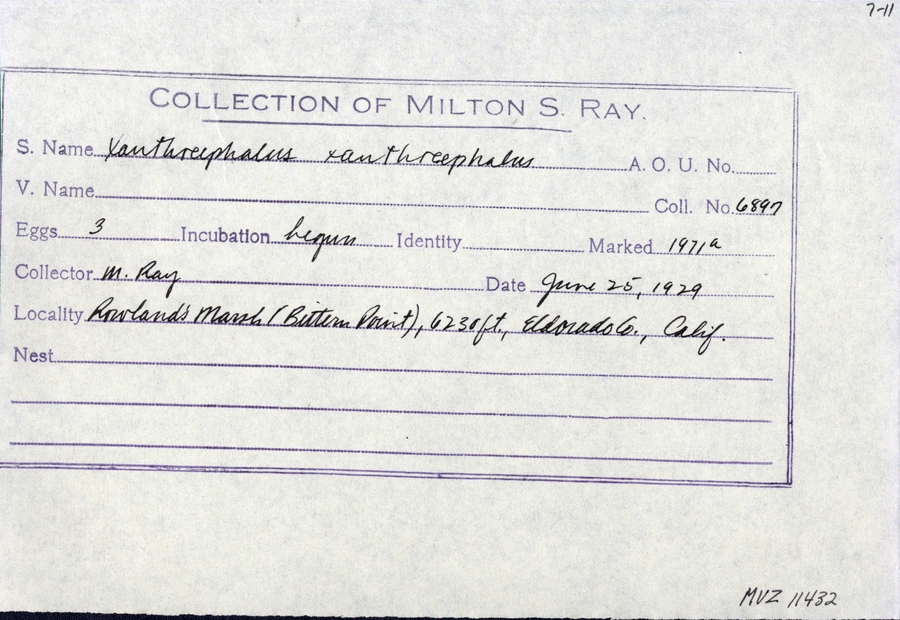 7-11
COLLECTION OF MILTON S. RAY.
S. Name Xanthocephalus xanthocephalus A. O. U. No.
V. Name Coll. No. 6897
Eggs 3 Incubation begun Identity Marked 1971a
Collector M. Ray Date June 25, 1929
Locality Rowland's Marsh (Bittern Point), 6230 ft., Eldorado Co., Calif.
Nest
MVZ 11432